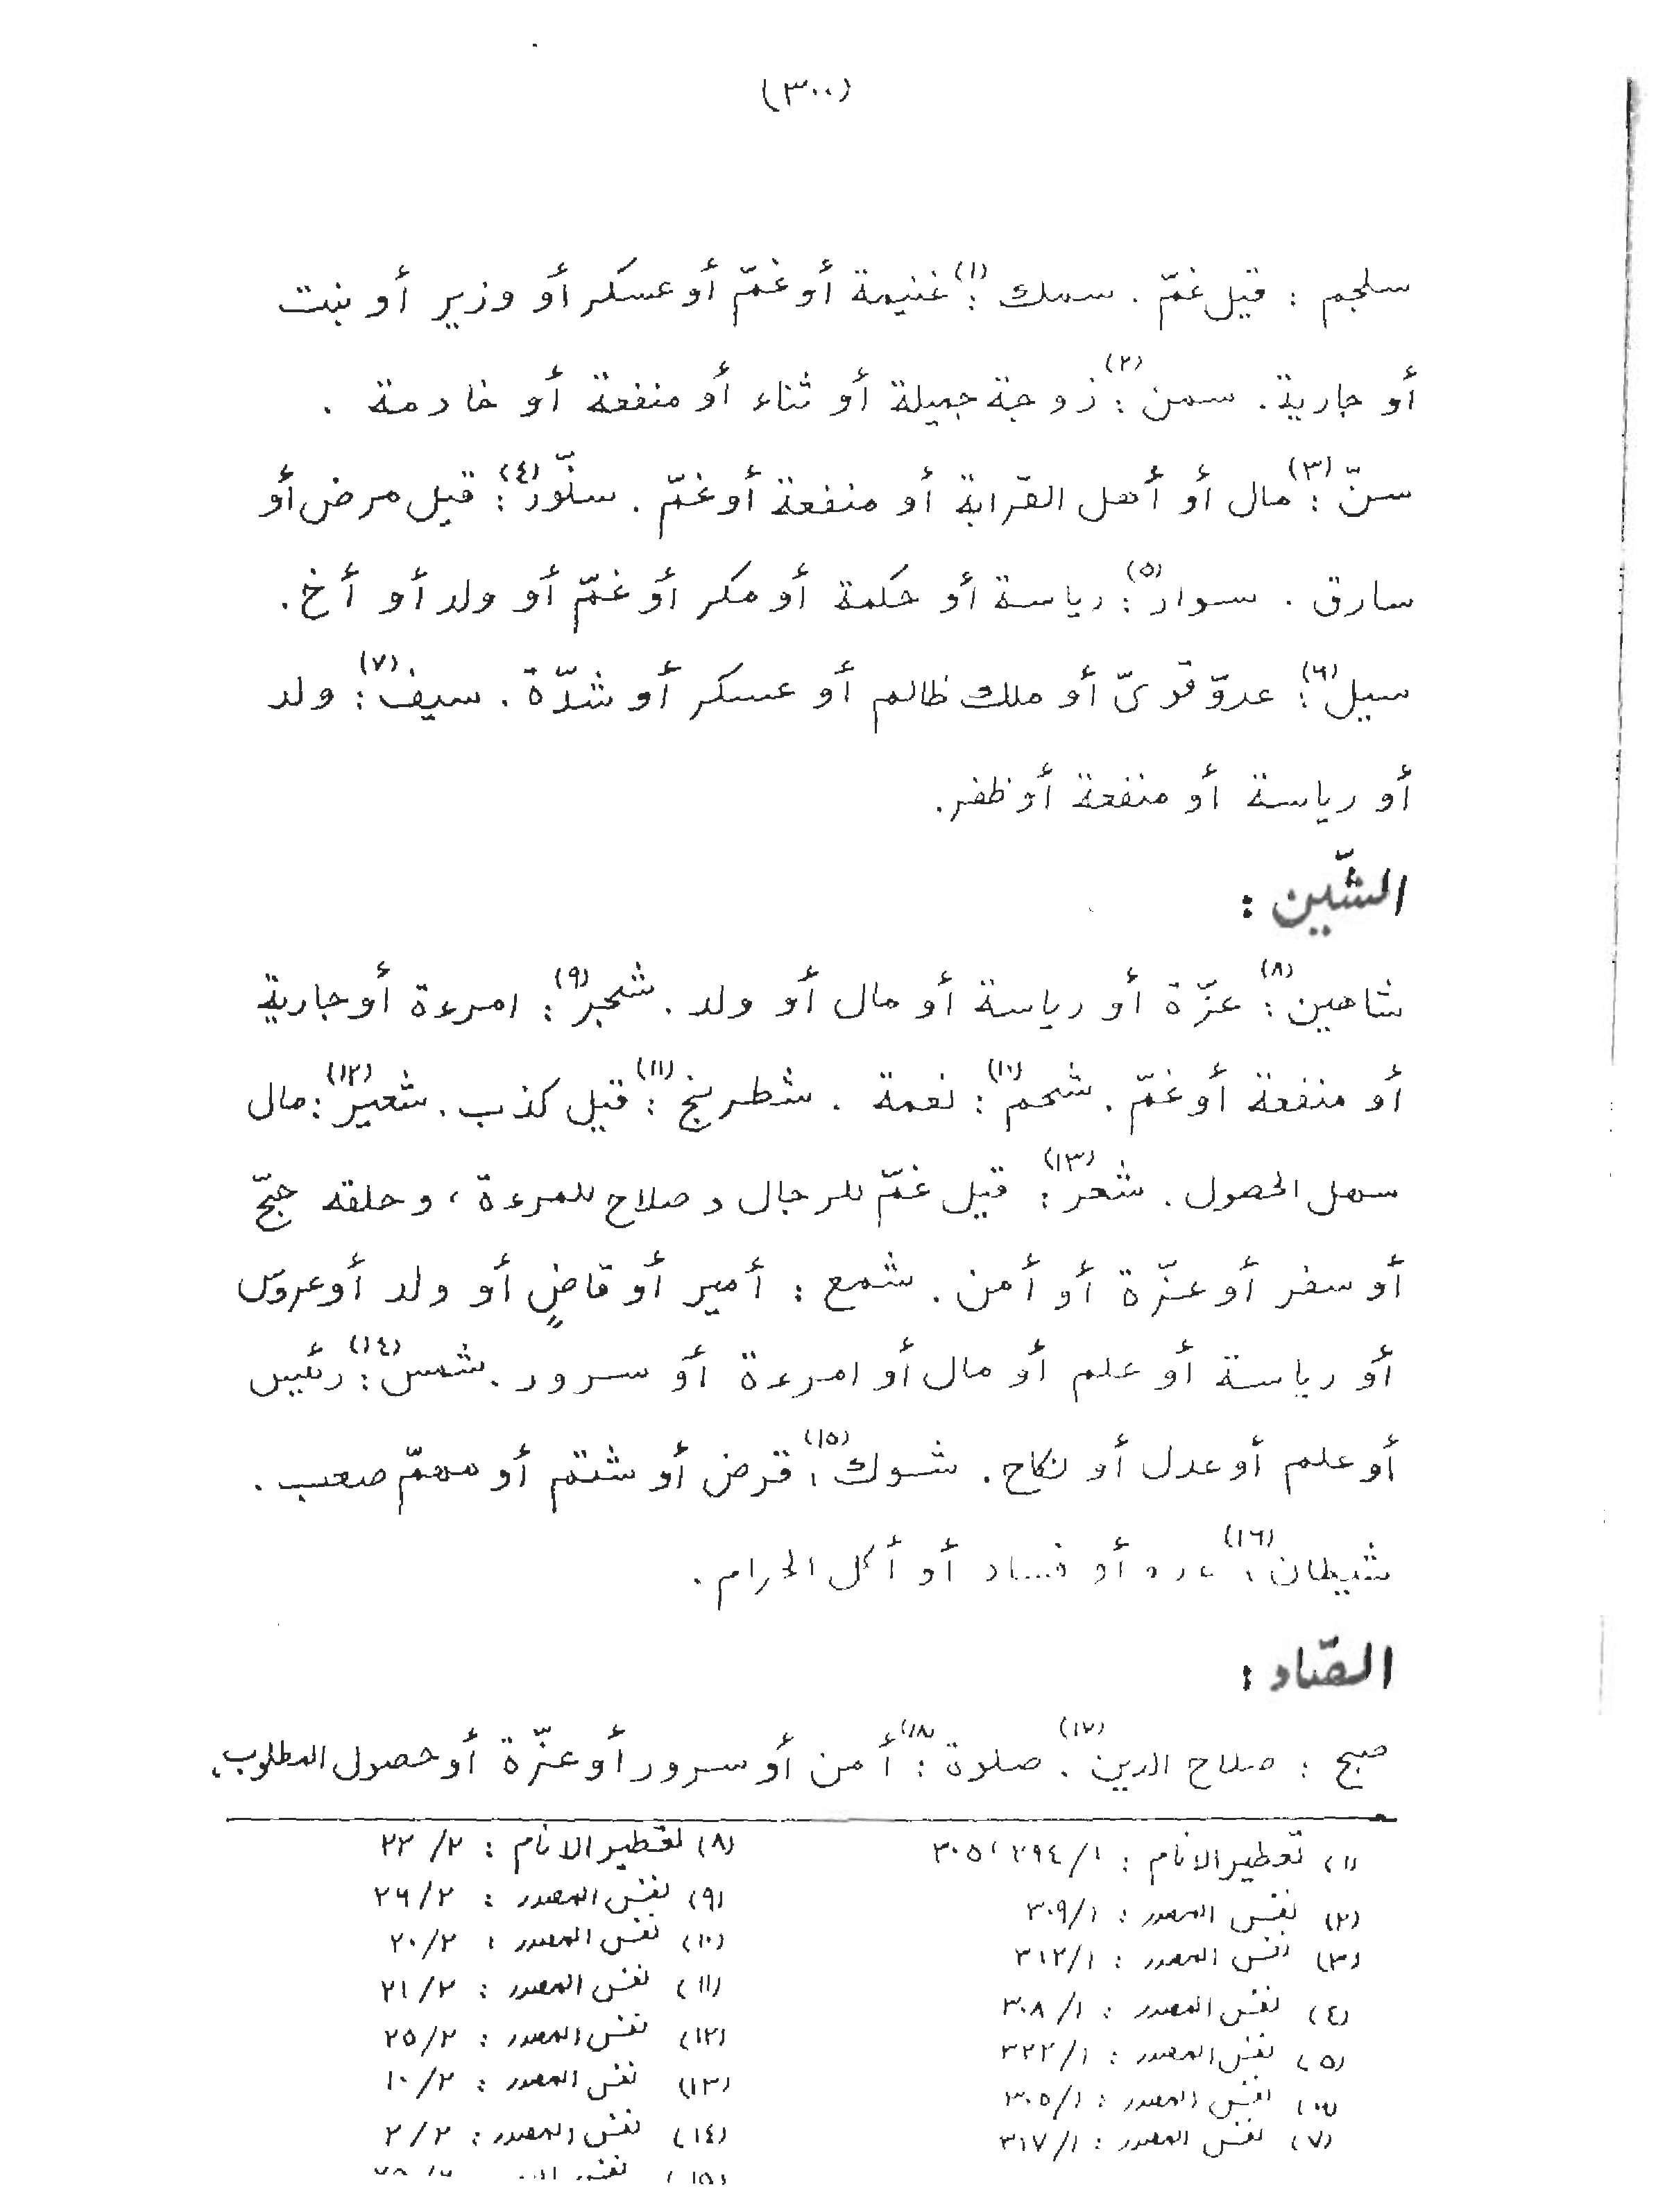 (٣٠٠)
سلجم : قيل غمّ . سمك (١): غنيمة أو غمّ أو عسكر أو وزير أو بنت
أو جارية . سمن (٢): زوجة جميلة أو ثناء أو منفعة أو خادمة .
سنّ (٣): مال أو أهل القرابة أو منفعة أو غمّ . سنّور (٤): قيل مرض أو
سارق . سوار (٥): رياسة أو حكمة أو مكر أو غمّ أو ولد أو أخ .
سيل (٦): عدوّ قوىّ أو ملك ظالم أو عسكر أو شدّة . سيف (٧): ولد
أو رياسة أو منفعة أو ظفر .
الشّين :
شاهين (٨): عزّة أو رياسة أو مال أو ولد . شجر (٩): امرءة أو جارية
أو منفعة أو غمّ . شحم (١٠): نعمة . شطرنج (١١): قيل كذب . شعير (١٢): مال
سهل الحصول . شعر (١٣): قيل غمّ للرجال وصلاح للمرءة ، وحلقه حجّ
أو سفر أو عزّة أو أمن . شمع : أمير أو قاضٍ أو ولد أو عروس
أو رياسة أو علم أو مال أو امرءة أو سرور . شمس (١٤): رئيس
أو علم أو عدل أو نكاح . شوك (١٥): قرض أو شتم أو مهمّ صعب .
شيطان (١٦): أو فساد أو أكل الحرام .
الصّاد :
صبح : صلاح الدين (١٧). صلوة (١٨): أمن أو سرور أو عزّة أو حصول المطلوب .
(١) تعطير الانام : ١/ ٢٩٤، ٣٠٥
(٢) نفس المصدر : ١/ ٣٠٩
(٣) نفس المصدر : ١/ ٣١٢
(٤) نفس المصدر : ١/ ٣٠٨
(٥) نفس المصدر : ١/ ٣٢٢
(٦) نفس المصدر : ١/ ٣٠٥
(٧) نفس المصدر : ١/ ٣١٧
(٨) تعطير الانام : ٢/ ٢٢
(٩) نفس المصدر : ٢/ ٢٦
(١٠) نفس المصدر : ٢/ ٢٠
(١١) نفس المصدر : ٢/ ٢١
(١٢) نفس المصدر : ٢/ ٢٥
(١٣) نفس المصدر : ٢/ ١٠
(١٤) نفس المصدر : ٢/ ٢
(١٥) نفس